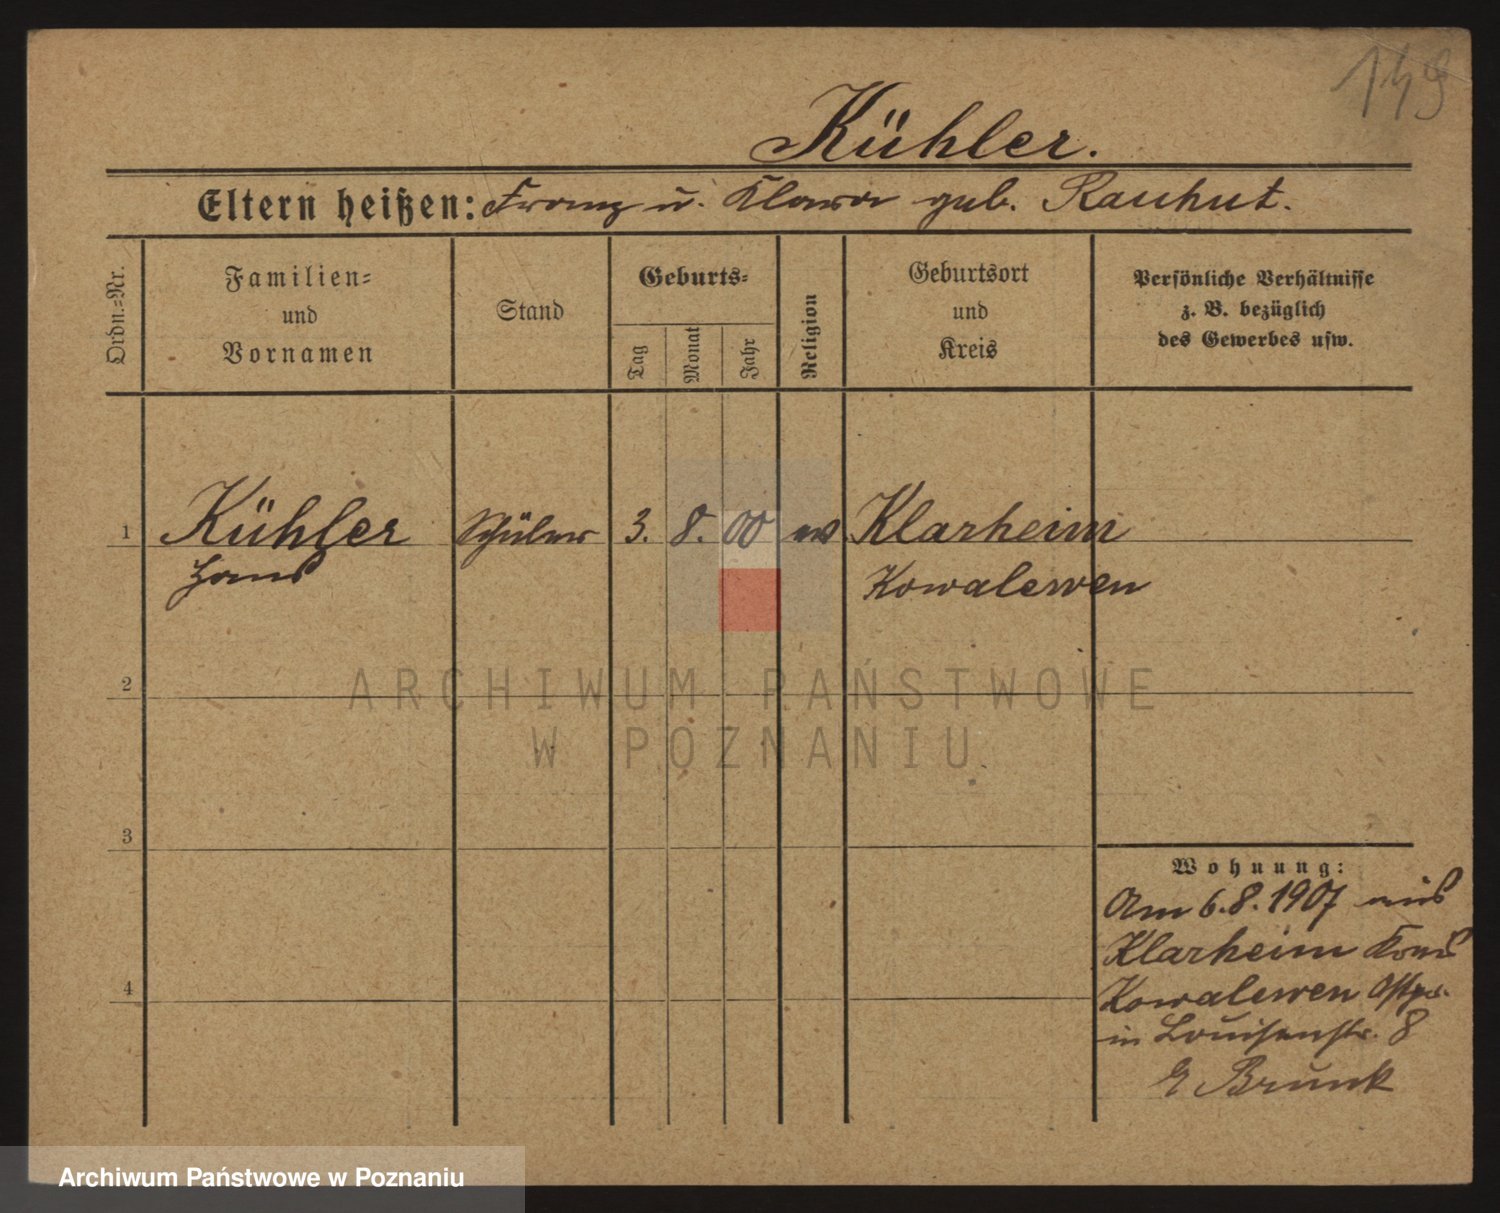 149
Kühler.
Eltern heißen: Franz u. Klara geb. Rauhut.
Ordn.=Nr.
Familien=
und
Vornamen
Stand
Geburts=
Tag
Monat
Jahr
Religion
Geburtsort
und
Kreis
Persönliche Verhältnisse
z. B. bezüglich
des Gewerbes usw.
1
Kühler
Hans
Schüler
3. 8. 00
ev
Klarheim
Kowalewen
2
ARCHIWUM PAŃSTWOWE
W POZNANIU
3
Wohnung:
Am 6.8.1907 aus
Klarheim Kreis
4
Kowalewen Ostpr.
in Louisenstr. 8
Brunk
Archiwum Państwowe w Poznaniu